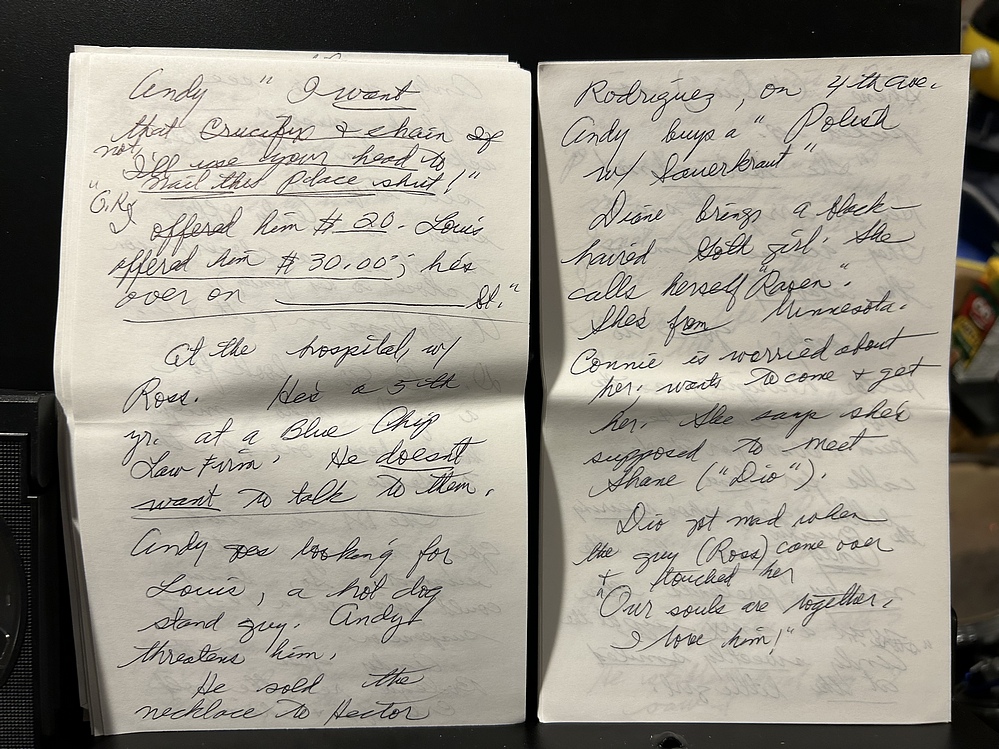 Andy " I want
that Crucifix & chain If
not, I'll use your head to
nail this place shut!"
"O.K. I
offered him $ 20. Louis
offered him $ 30.00"; he's
over on ____________ St."
At the hospital, w/
Ross. He's a 5th
yr. at a Blue Chip
Law Firm. He doesn't
want to talk to them.
Andy goes looking for
Louis, a hot dog
stand guy. Andy
threatens him.
He sold the
necklace to Hector
Rodriguez, on 4th ave.
Andy buys a " Polish
w/ Sauerkraut"
Diane brings a black-
haired Goth girl. She
calls herself "Raven".
She's from Minnesota.
Connie is worried about
her, wants to come & get
her. She says she's
supposed to meet
Shane ("Dio").
Dio got mad when
the guy (Ross) came over
& touched her
"Our souls are together,
I love him!"